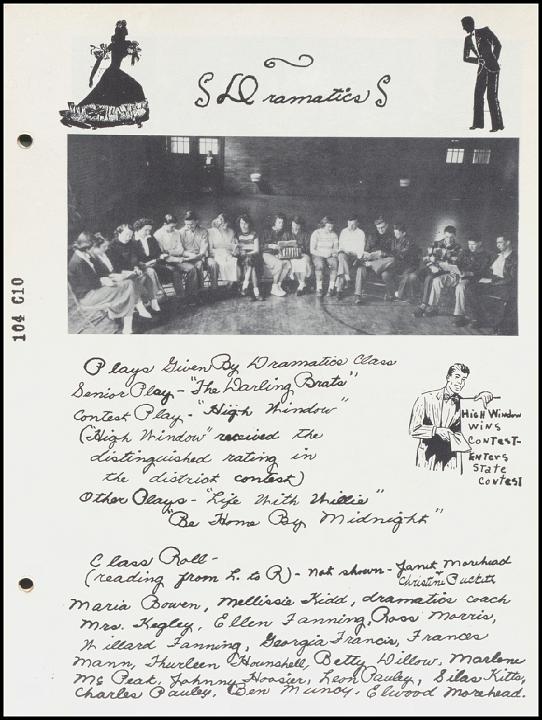 Dramatics
104 C10
Plays Given By Dramatics Class
Senior Play - "The Darling Brats"
Contest Play - "High Window"
("High Window" received the
distinguished rating in
the district contest)
Other Plays - "Life With Willie"
"Be Home By Midnight"
High Window
Wins
Contest-
Enters
State
Contest
Class Roll -
(reading from L. to R) - Not shown - Janet Morehead
Christine Puckett
Maria Bowen, Mellissie Kidd, dramatics coach
Mrs. Kegley, Ellen Fanning, Ross Morris,
Willard Fanning, Georgia Francis, Frances
Mann, Thurleen Hounshell, Betty Dillow, Marlene
Mc Peak, Johnny Hoosier, Leon Pauley, Silas Kitts,
Charles Pauley, Ben Muncy, Elwood Morehead.